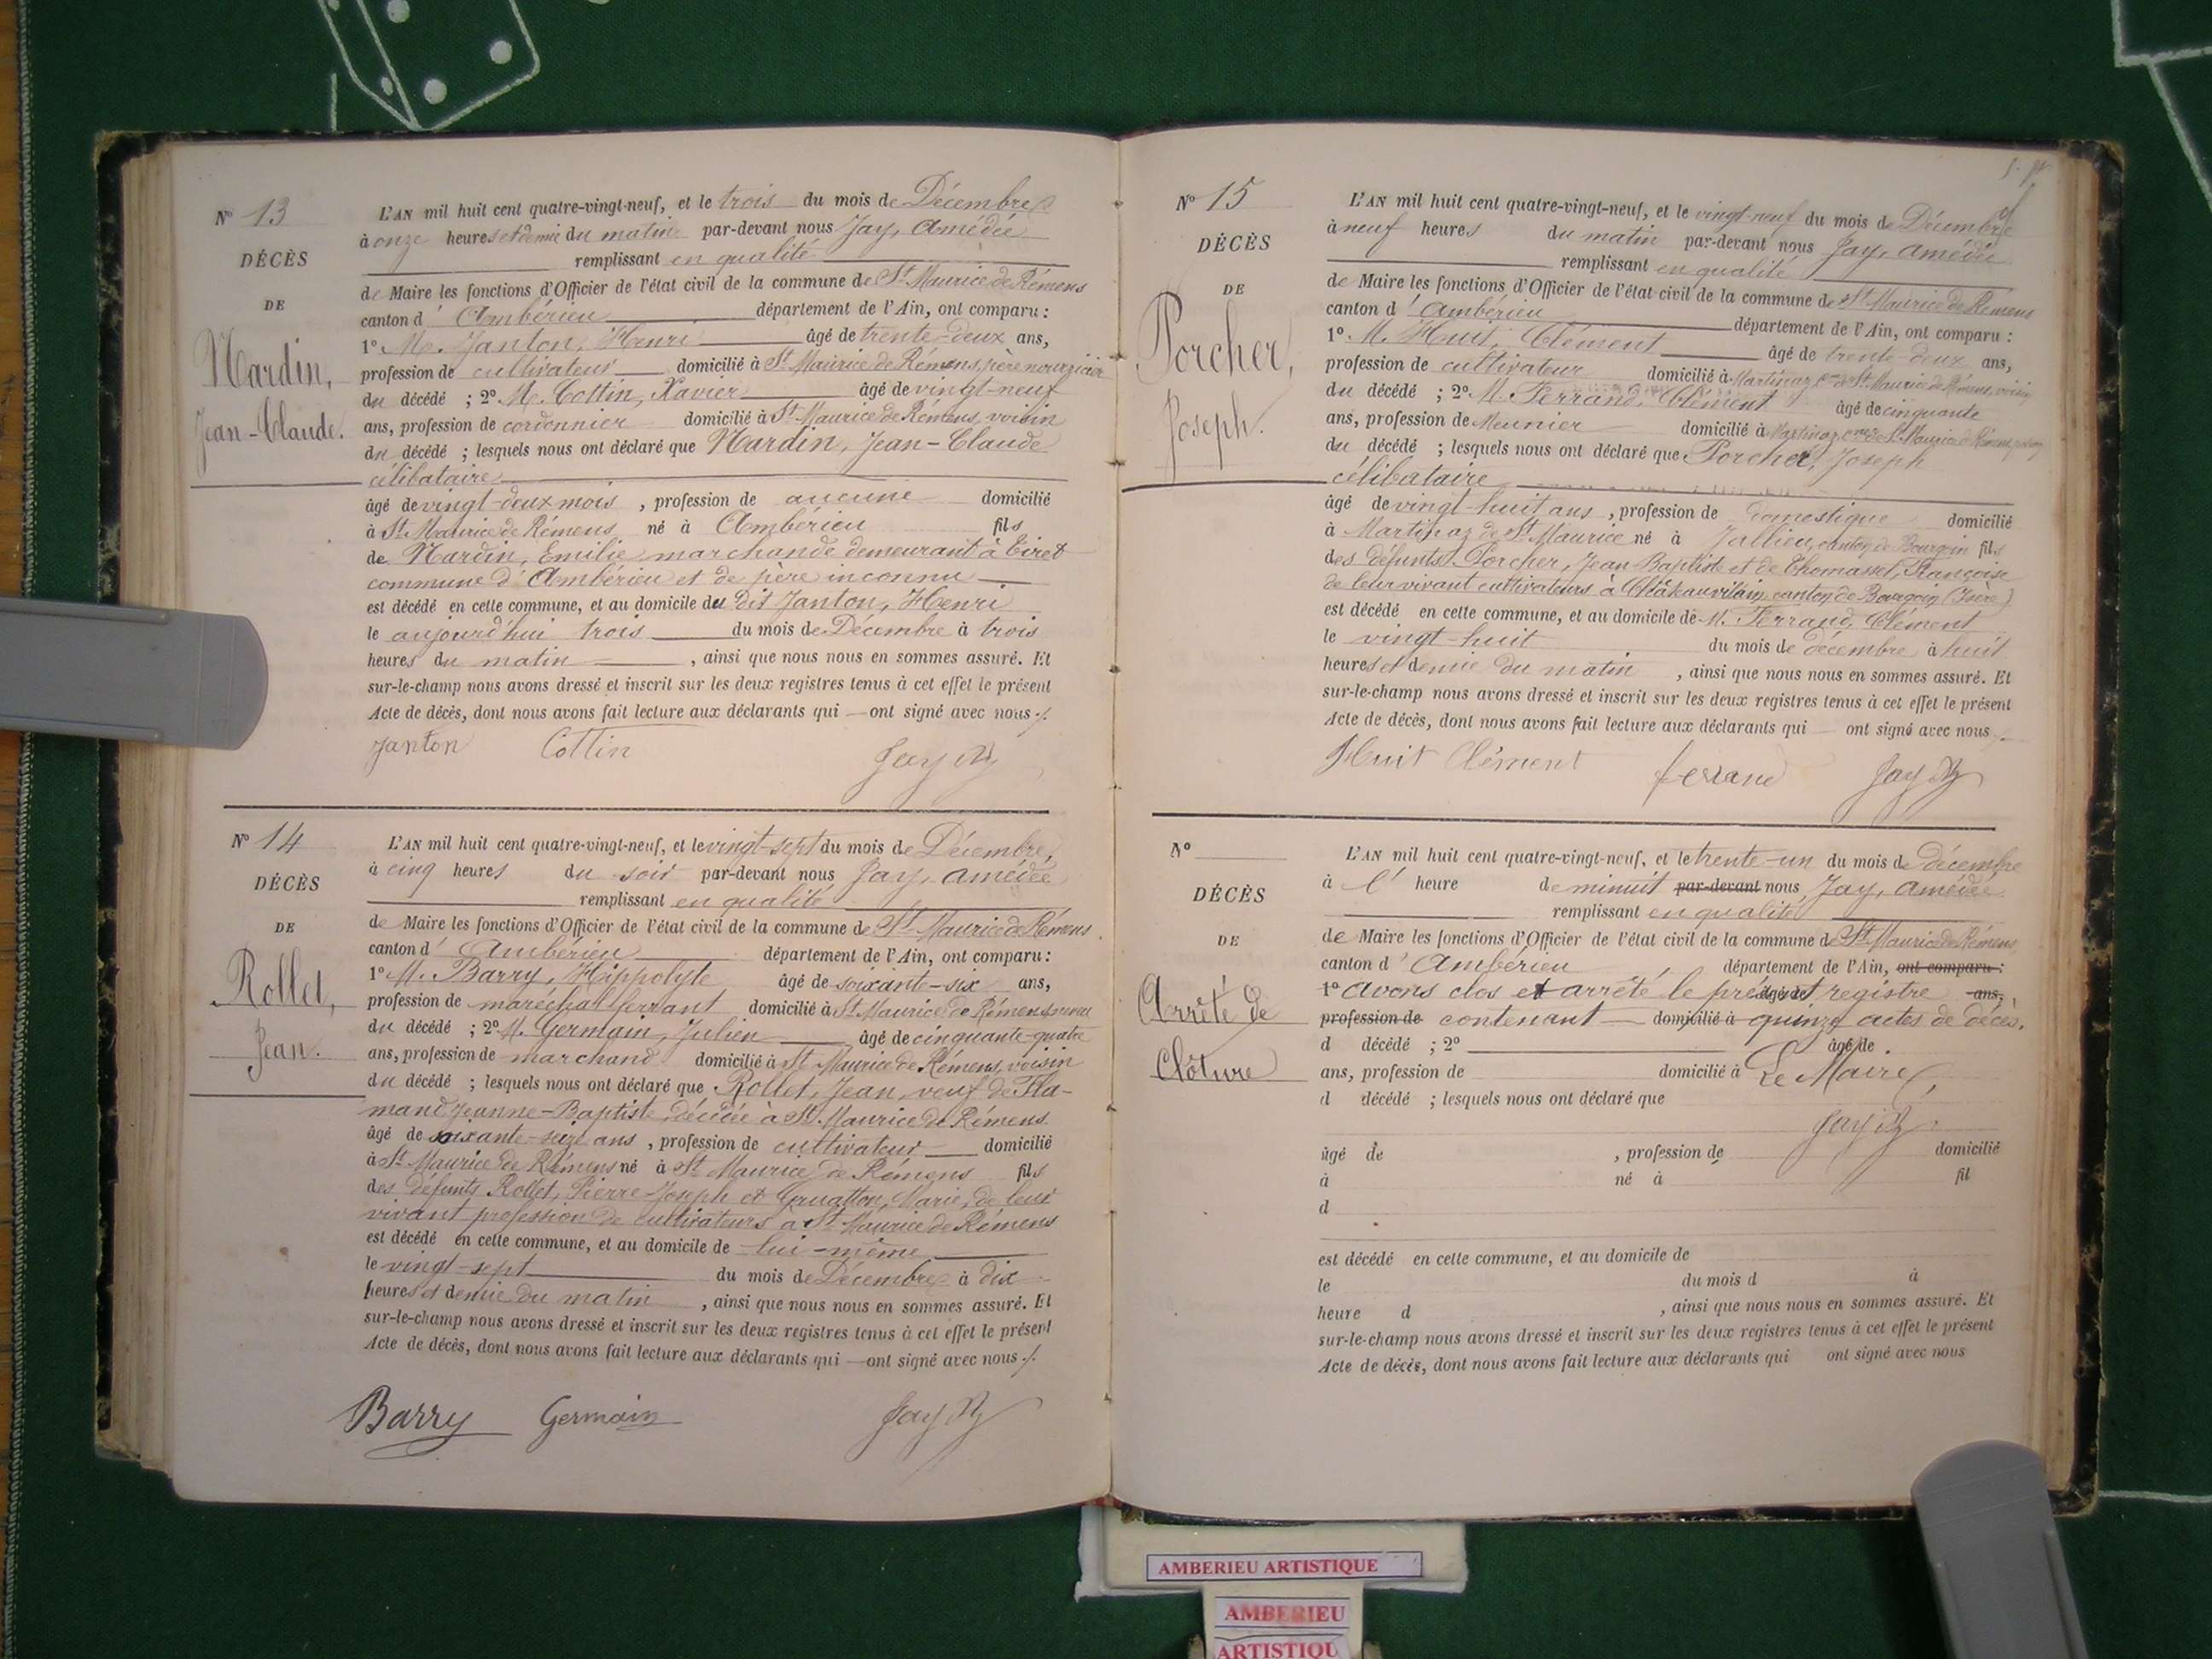 N° 13
DÉCÈS
DE
Nardin,
Jean-Claude.
L'AN mil huit cent quatre-vingt-neuf, et le trois du mois de Décembre
à onze heures et demie du matin par-devant nous Jay, Amédée
remplissant en qualité
de Maire les fonctions d'Officier de l'état civil de la commune de St Maurice de Rémens
canton d'Ambérieu département de l'Ain, ont comparu :
1° M. Janton, Henri âgé de trente-deux ans,
profession de cultivateur domicilié à St Maurice de Rémens, père nourricier
du décédé ; 2° M. Cottin, Xavier âgé de vingt-neuf
ans, profession de cordonnier domicilié à St Maurice de Rémens, voisin
du décédé ; lesquels nous ont déclaré que Nardin, Jean-Claude
célibataire
âgé de vingt-deux mois, profession de aucune domicilié
à St Maurice de Rémens né à Ambérieu fils
de Nardin, Emilie, marchande demeurant à Tiret
commune d'Ambérieu et de père inconnu
est décédé en cette commune, et au domicile du dit Janton, Henri
le aujourd'hui trois du mois de Décembre à trois
heures du matin, ainsi que nous nous en sommes assuré. Et
sur-le-champ nous avons dressé et inscrit sur les deux registres tenus à cet effet le présent
Acte de décès, dont nous avons fait lecture aux déclarants qui — ont signé avec nous ./.
Janton Cottin Jay
N° 14
DÉCÈS
DE
Rollet,
Jean.
L'AN mil huit cent quatre-vingt-neuf, et le vingt-sept du mois de Décembre,
à cinq heures du soir par-devant nous Jay, Amédée
remplissant en qualité
de Maire les fonctions d'Officier de l'état civil de la commune de St Maurice de Rémens
canton d'Ambérieu département de l'Ain, ont comparu :
1° M. Barry, Hippolyte âgé de soixante-six ans,
profession de maréchal ferrant domicilié à St Maurice de Rémens
du décédé ; 2° M. Germain, Julien âgé de cinquante-quatre
ans, profession de marchand domicilié à St Maurice de Rémens, voisin
du décédé ; lesquels nous ont déclaré que Rollet, Jean, veuf de Fla-
mand Jeanne-Baptiste, décédée à St Maurice de Rémens
âgé de soixante-seize ans, profession de cultivateur domicilié
à St Maurice de Rémens né à St Maurice de Rémens fils
des défunts Rollet, Pierre-Joseph et Gruatton, Marie, de leur
vivant profession de cultivateurs à St Maurice de Rémens
est décédé en cette commune, et au domicile de lui-même
le vingt-sept du mois de Décembre à dix
heures et demie du matin, ainsi que nous nous en sommes assuré. Et
sur-le-champ nous avons dressé et inscrit sur les deux registres tenus à cet effet le présent
Acte de décès, dont nous avons fait lecture aux déclarants qui — ont signé avec nous ./.
Barry Germain Jay
N° 15
DÉCÈS
DE
Porcher,
Joseph.
L'AN mil huit cent quatre-vingt-neuf, et le vingt-neuf du mois de Décembre
à neuf heures du matin par-devant nous Jay, Amédée
remplissant en qualité
de Maire les fonctions d'Officier de l'état civil de la commune de St Maurice de Rémens
canton d'Ambérieu département de l'Ain, ont comparu :
1° M. Huit, Clément âgé de trente-deux ans,
profession de cultivateur domicilié à Martinaz, Cne de St Maurice de Rémens, voisin
du décédé ; 2° M. Ferrand, Clément âgé de cinquante
ans, profession de Meunier domicilié à Martinaz, Cne de St Maurice de Rémens
du décédé ; lesquels nous ont déclaré que Porcher, Joseph
célibataire
âgé de vingt-huit ans, profession de domestique domicilié
à Martinaz de St Maurice né à Jallieu, canton de Bourgoin fils
des défunts Porcher, Jean-Baptiste et de Thomasset, Françoise
de leur vivant cultivateurs à Châteauvilain, canton de Bourgoin (Isère)
est décédé en cette commune, et au domicile de M. Ferrand, Clément
le vingt-huit du mois de décembre à huit
heures et demie du matin, ainsi que nous nous en sommes assuré. Et
sur-le-champ nous avons dressé et inscrit sur les deux registres tenus à cet effet le présent
Acte de décès, dont nous avons fait lecture aux déclarants qui — ont signé avec nous ./.
Huit Clément ferrand Jay
N°
DÉCÈS
DE
Arrêté de
Clôture
L'AN mil huit cent quatre-vingt-neuf, et le trente-un du mois de décembre
à l' heure de minuit par-devant nous Jay, Amédée
remplissant en qualité
de Maire les fonctions d'Officier de l'état civil de la commune de St Maurice de Rémens
canton d'Ambérieu département de l'Ain, ont comparu :
1° avons clos et arrêté le présent registre âgé de ans,
profession de contenant domicilié à quinze actes de décès.
d décédé ; 2° âgé de
ans, profession de domicilié à Le Maire,
d décédé ; lesquels nous ont déclaré que
Jay
âgé de , profession de domicilié
à né à fil
d
est décédé en cette commune, et au domicile de
le du mois d à
heure d , ainsi que nous nous en sommes assuré. Et
sur-le-champ nous avons dressé et inscrit sur les deux registres tenus à cet effet le présent
Acte de décès, dont nous avons fait lecture aux déclarants qui ont signé avec nous
AMBERIEU ARTISTIQUE
AMBERIEU
ARTISTIQU